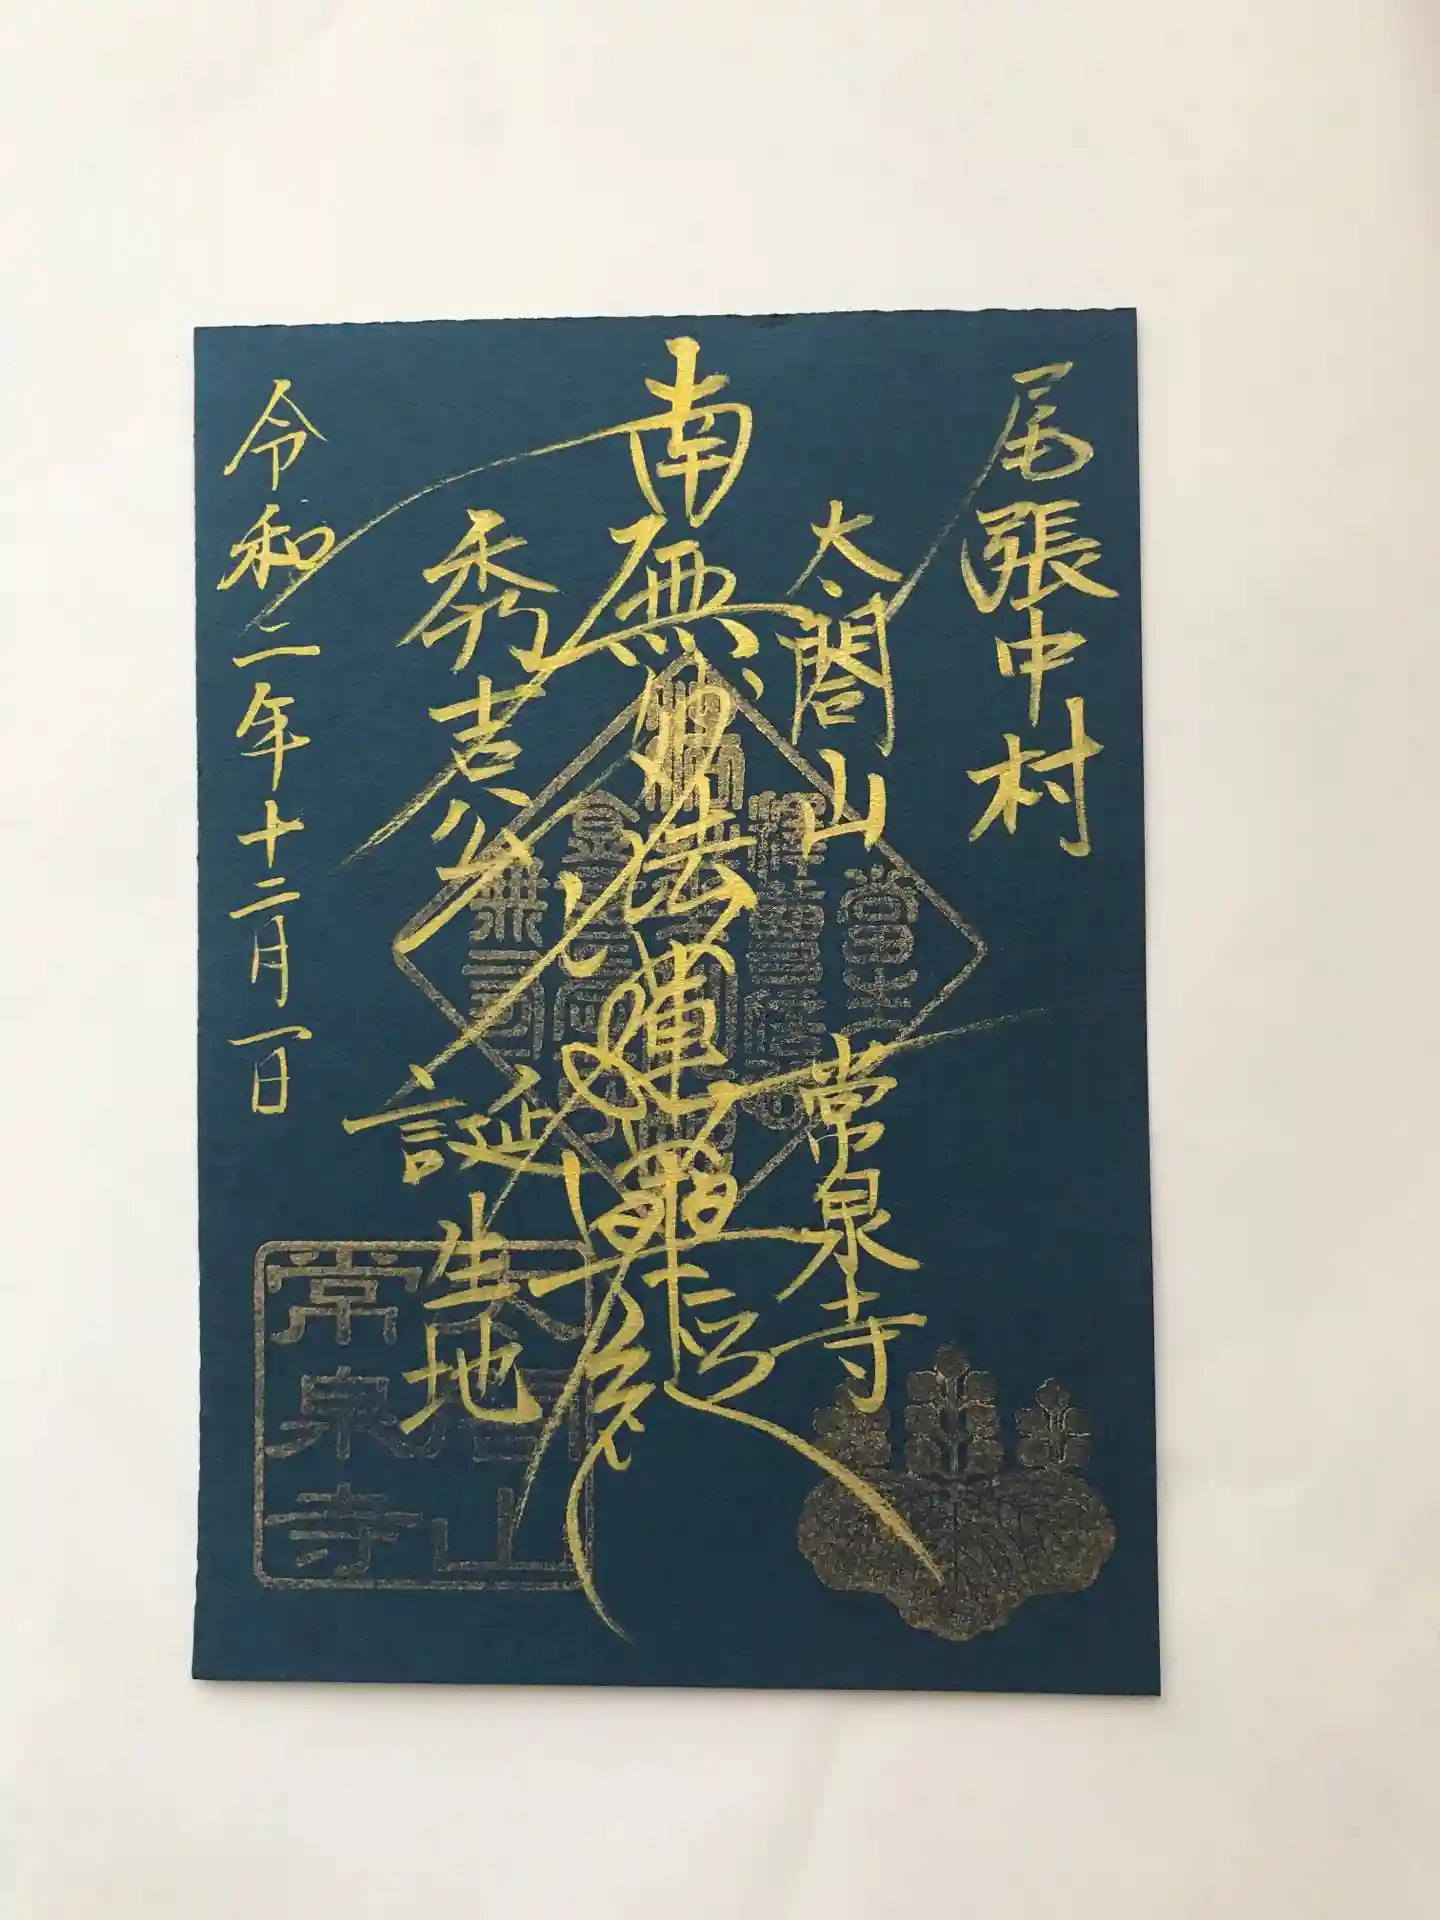 尾張中村
太閤山
常泉寺
南無妙法蓮華経
秀吉公
誕生地
令和二年十二月一日
太閤山
常泉寺